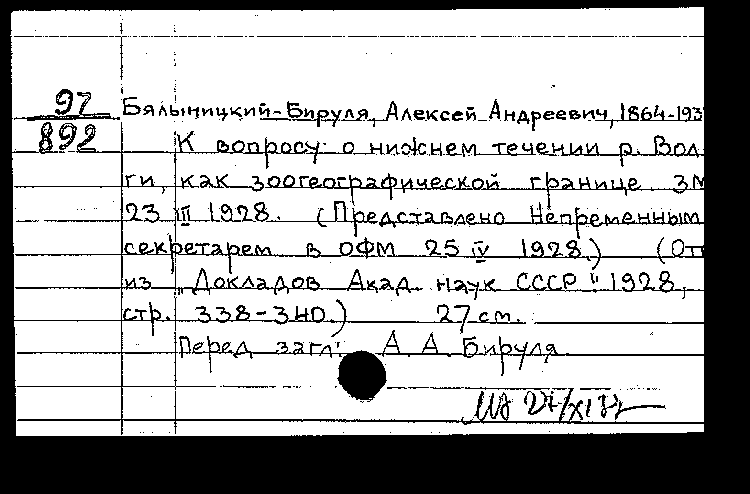 97
892
Бялыницкий-Бируля, Алексей Андреевич, 1864-193
К вопросу о нижнем течении р. Вол-
ги, как зоогеографической границе. ЗМ
23 III 1928. (Представлено Непременным
секретарем в ОФМ 25 IV 1928.) (От
из „Докладов Акад. наук СССР" 1928,
стр. 338-340.) 27 см.
Перед загл: А. А. Бируля.